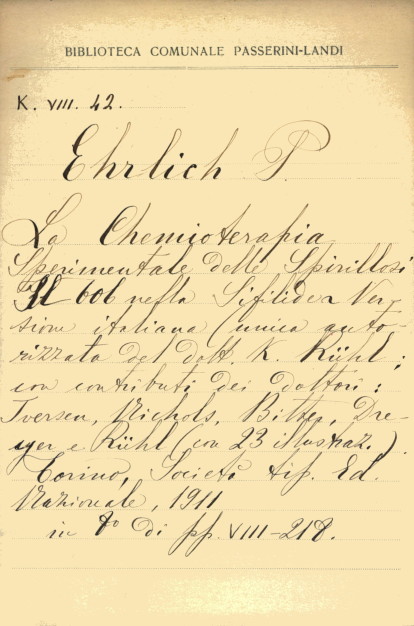 BIBLIOTECA COMUNALE PASSERINI-LANDI
K. VIII. 42.
Ehrlich P.
La Chemioterapia
Sperimentale delle Spirillosi
Il 606 nella Sifilide Ver-
sione italiana (unica auto-
rizzata del dott. K. Rühl;
con contributi dei dottori:
Iversen, Nichols, Bitter, Dre-
yer e Rühl (con 23 illustraz.)
Torino, Società tip. Ed.
Nazionale, 1911
in 8o di pp. VIII-218.